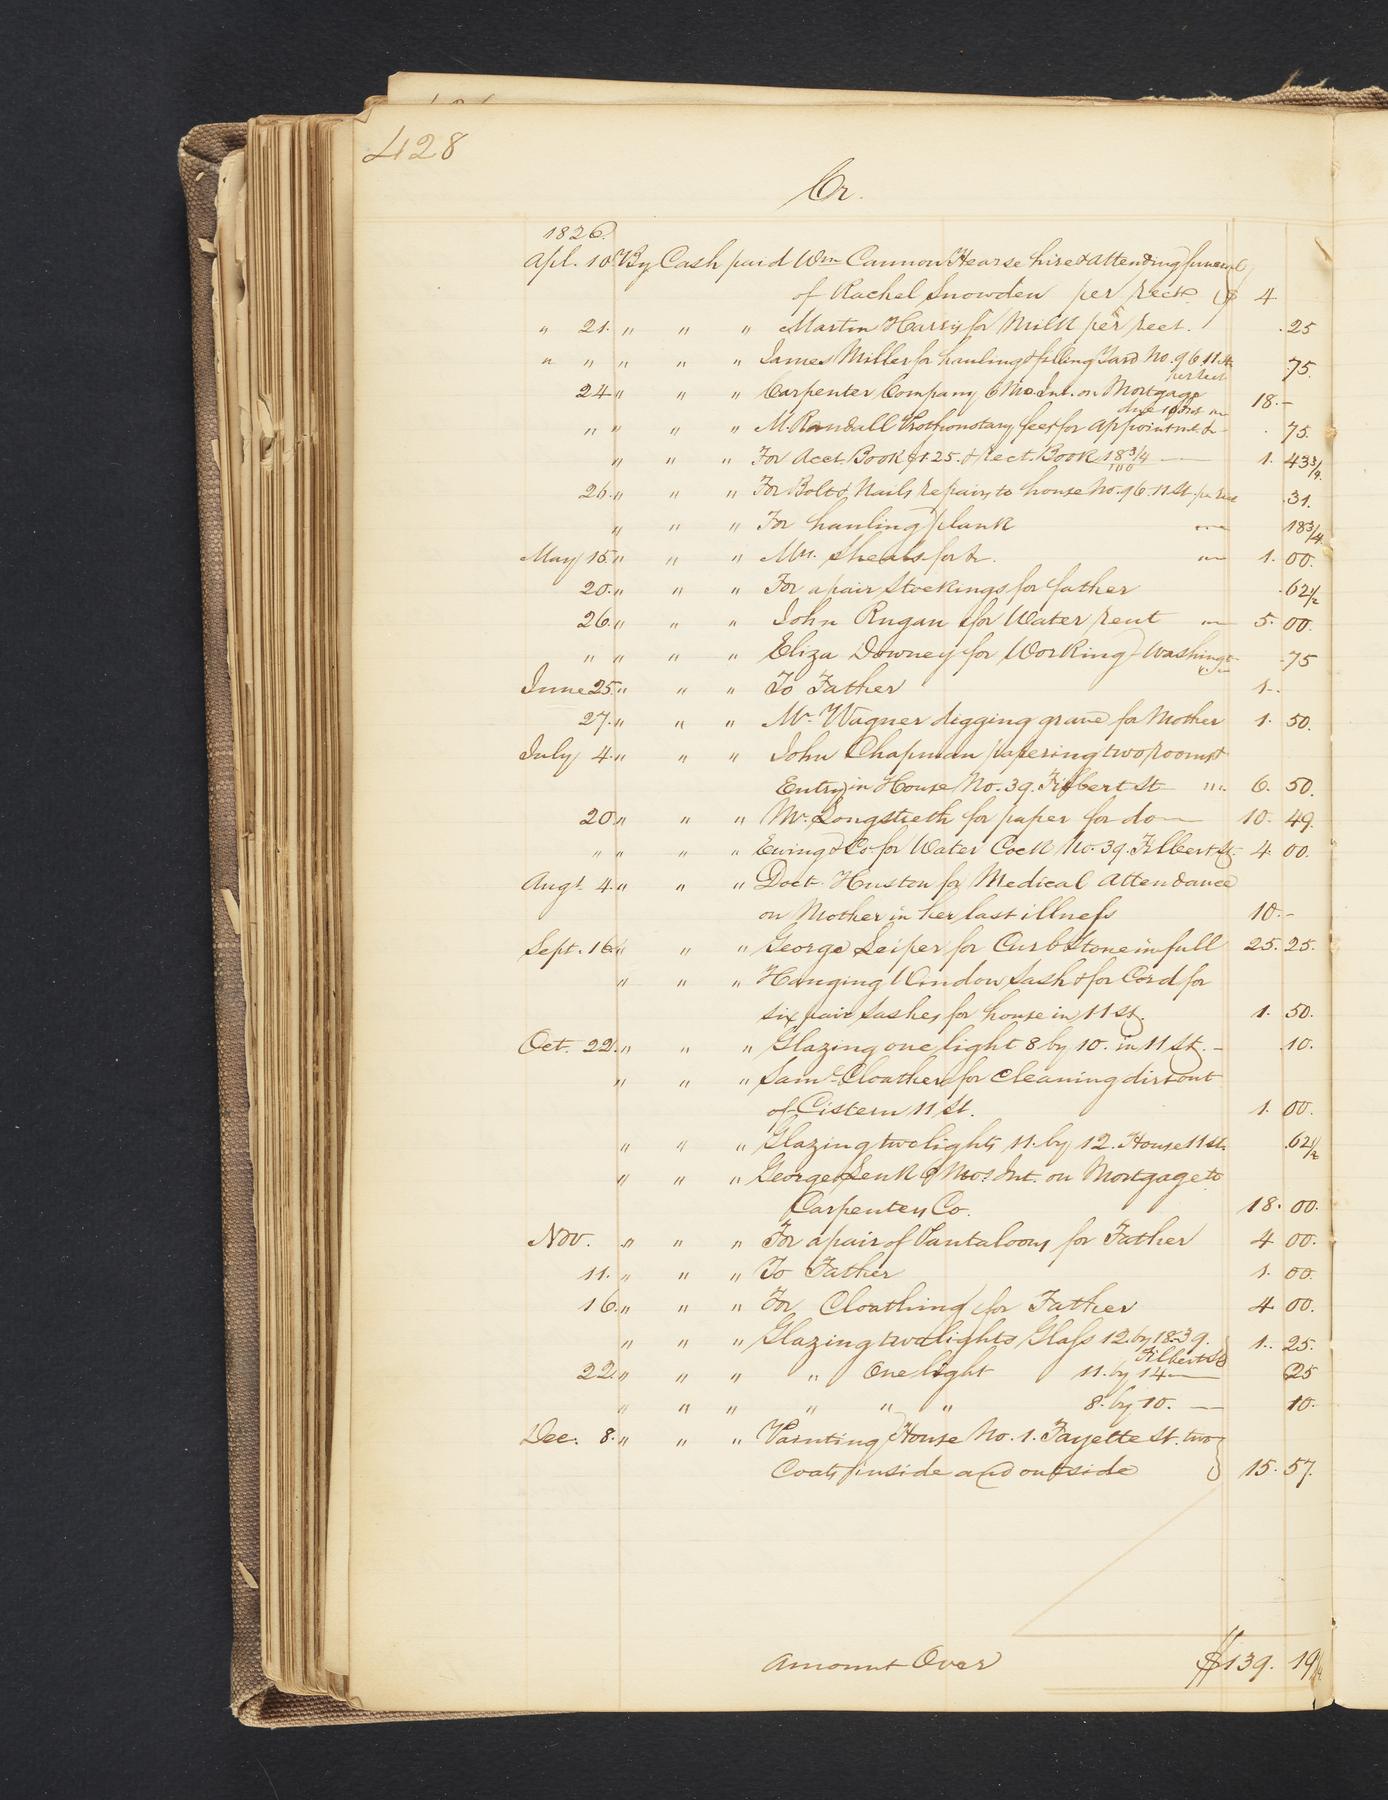 428
Cr.
1826.
Apl. 10 By Cash paid Wm Cannon Hearse hire & attending funeral
of Rachel Snowden per rect. $ 4
" 21. " " " Martin Harris for Milk per rect. .25
" " " " " James Miller for hauling & filling Yard No. 96. 11. St. 75.
per rect
24 " " " Carpenter Company 6 Mo. Int. on Mortgage 18.-
due 10th
" " " " M. Randall Prothonotary fees for appointmt &c . 75.
" " " For Acct. Book $1.25. & rect. Book 18 3/4/100 1. 43 3/4.
26. " " " For Bolts, Nails repairs to house No. 96. 11 St. per rect .31.
" " " For hauling plank " 18 3/4
May 15. " " " Mr. Sheals for &c. " 1. 00.
20. " " " For a pair Stockings for father .62 1/2
26. " " " John Rugan for Water rent " 5. 00.
" " " " Eliza Downey for Working Washing .75
June 25. " " " To Father 1..
27. " " " Mr. Wagner digging grave for Mother 1. 50.
July 4. " " " John Chapman papering two rooms &
Entry in House No. 39. Filbert St " 6. 50.
20. " " " Mr. Longstreth for paper for do 10. 49.
" " " " Ewing & Co. for Water Cock No. 39. Filbert St. 4. 00.
Augt. 4. " " " Doct. Huston for Medical Attendance
on Mother in her last illness 10.-
Sept. 16. " " " George Leiper for Curb Stone in full 25. 25.
" " " Hanging Window Sash & for Cord for
six pair sashes for house in 11 St. 1. 50.
Oct. 22. " " " Glazing one light 8 by 10. in 11 St. - .10.
" " " Saml. Cloathers for cleaning dirt out
of Cistern 11 St. 1. 00.
" " " Glazing two lights 11. by 12. House 11 St. .62 1/2
" " " George Lenk 6 Mos. Int. on Mortgage to
Carpenters Co. 18. 00.
Nov. " " " For a pair of Pantaloons for Father 4 00.
11. " " " To Father 1. 00.
16. " " " For Cloathing for Father 4 00.
" " " Glazing two lights Glass 12. by 18. 39. 1.. 25.
Filbert St
22. " " " " One light 11. by 14 25
" " " " " " 8. by 10. 10.
Dec. 8. " " " Painting House No. 1. Fayette St. two
Coats inside and outside 15. 57.
Amount Over $139. 19